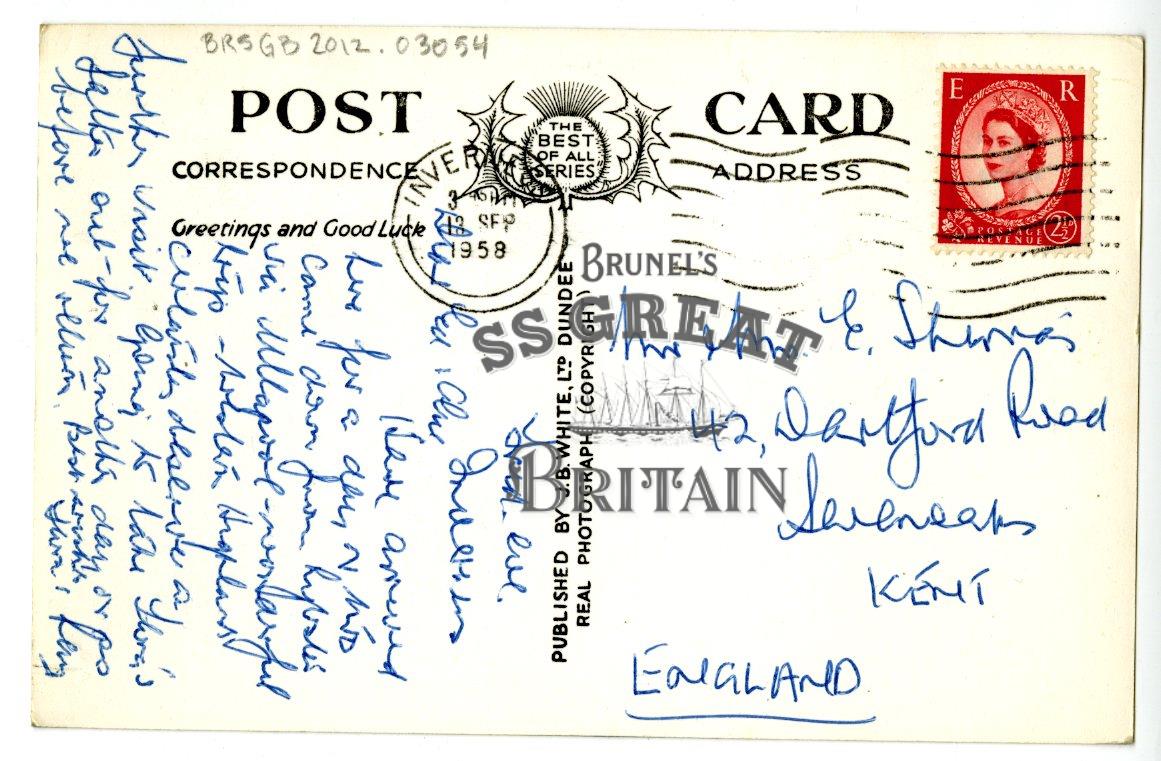 BRSGB 2012.03054
POST CARD
THE
BEST
OF ALL
SERIES
CORRESPONDENCE
ADDRESS
Greetings and Good Luck
INVERNESS
12 SEP
1958
E R
POSTAGE
REVENUE
2½D
PUBLISHED BY J.B. WHITE, LTD DUNDEE
REAL PHOTOGRAPH (COPYRIGHT)
BRUNEL'S
SS GREAT
BRITAIN
Inverness
Have arrived
here for a day or two
came down from
via Ullapool - wonderful
trip - Western Highland
certainly deserve a
further visit. Going to take
out for another day or so
before we return. Best wishes
Mr & Mrs. E.
42, Dartford Road
Sevenoaks
KENT
ENGLAND